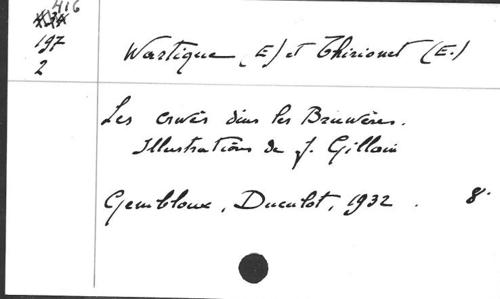 416
197
2
Wartique (E) et Thirionet (E.)
Les crwès dins les Bruwères.
Illustrations de J. Gillain
Gembloux, Duculot, 1932. 8°